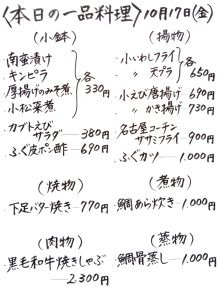 〈本日の一品料理〉10月17日(金)
(小鉢)
南蛮漬け
キンピラ
厚揚げのみそ煮
小松菜煮
各330円
カブトえび
サラダ―380円
ふぐ皮ポン酢―690円
(揚物)
小いわしフライ
〃 天プラ
各650円
小えび唐揚げ―690円
〃 かき揚げ―730円
名古屋コーチン
ササミフライ―900円
ふぐカツ―1.000円
(焼物)
下足バター焼き―770円
(煮物)
鯛あら炊き―1.000円
(肉物)
黒毛和牛焼きしゃぶ
―2.300円
(蒸物)
鯛骨蒸し―1.000円